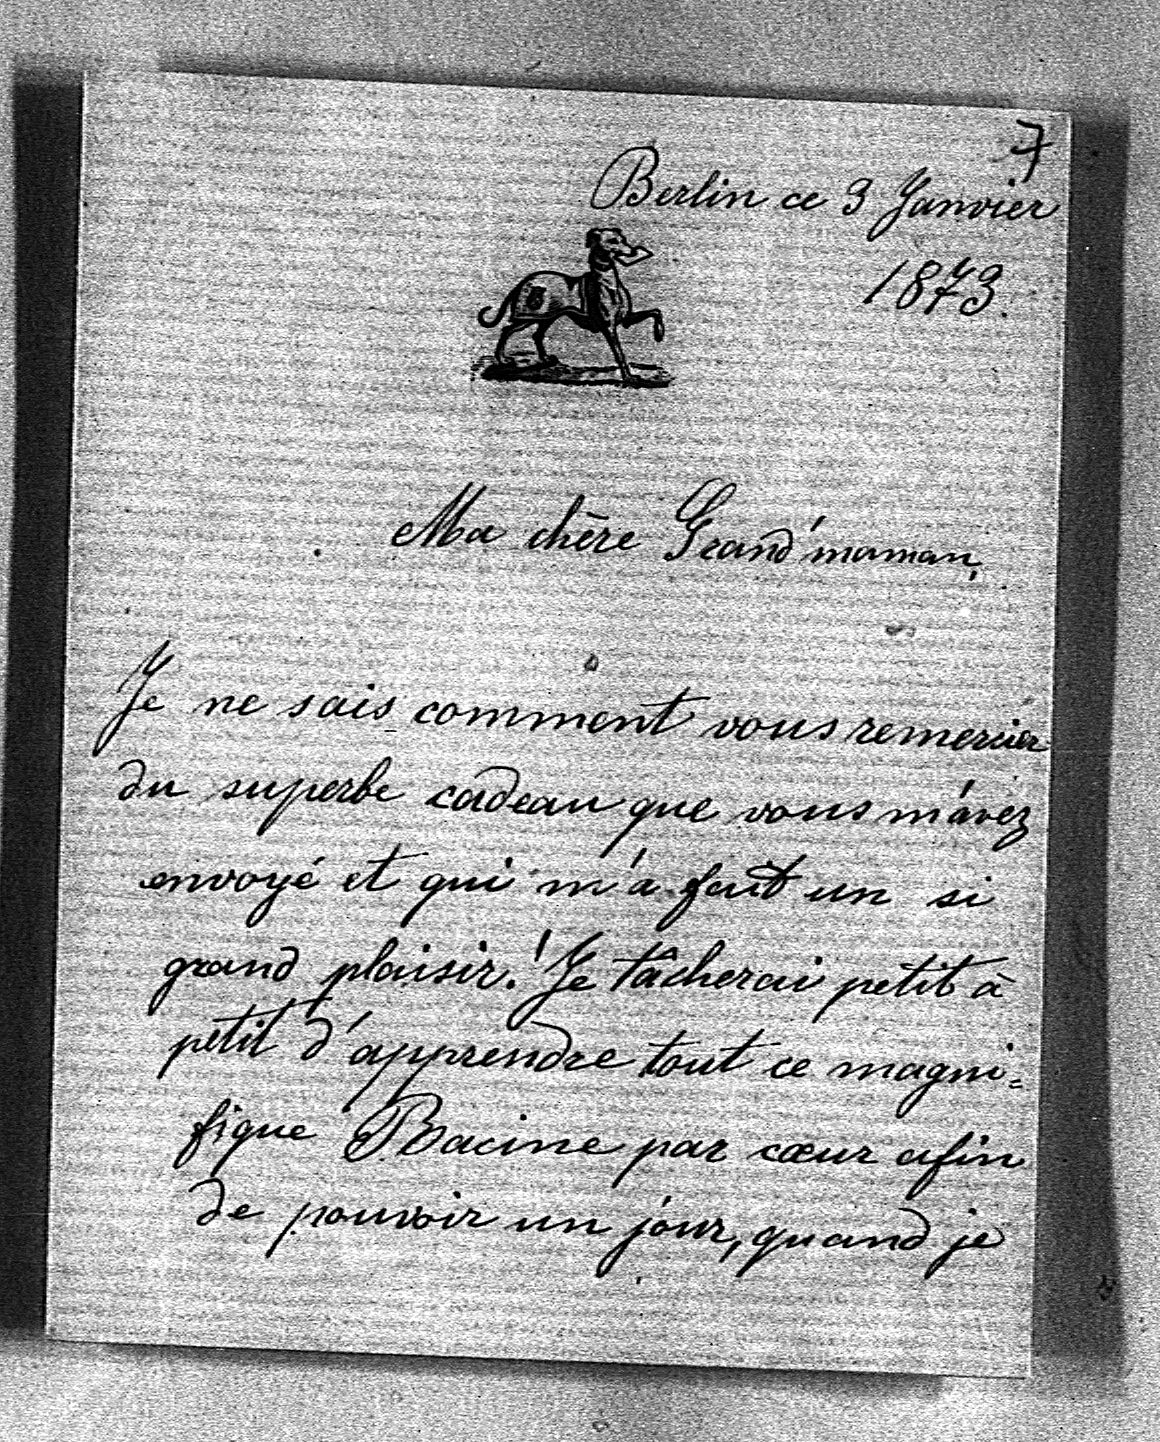 7
Berlin ce 3 Janvier
1873.
B
Ma chère Grand'maman,
Je ne sais comment vous remercier
du superbe cadeau que vous m'avez
envoyé et qui m'a fait un si
grand plaisir! Je tâcherai petit à
petit d'apprendre tout ce magni=
fique Racine par cœur afin
de pouvoir un jour, quand je